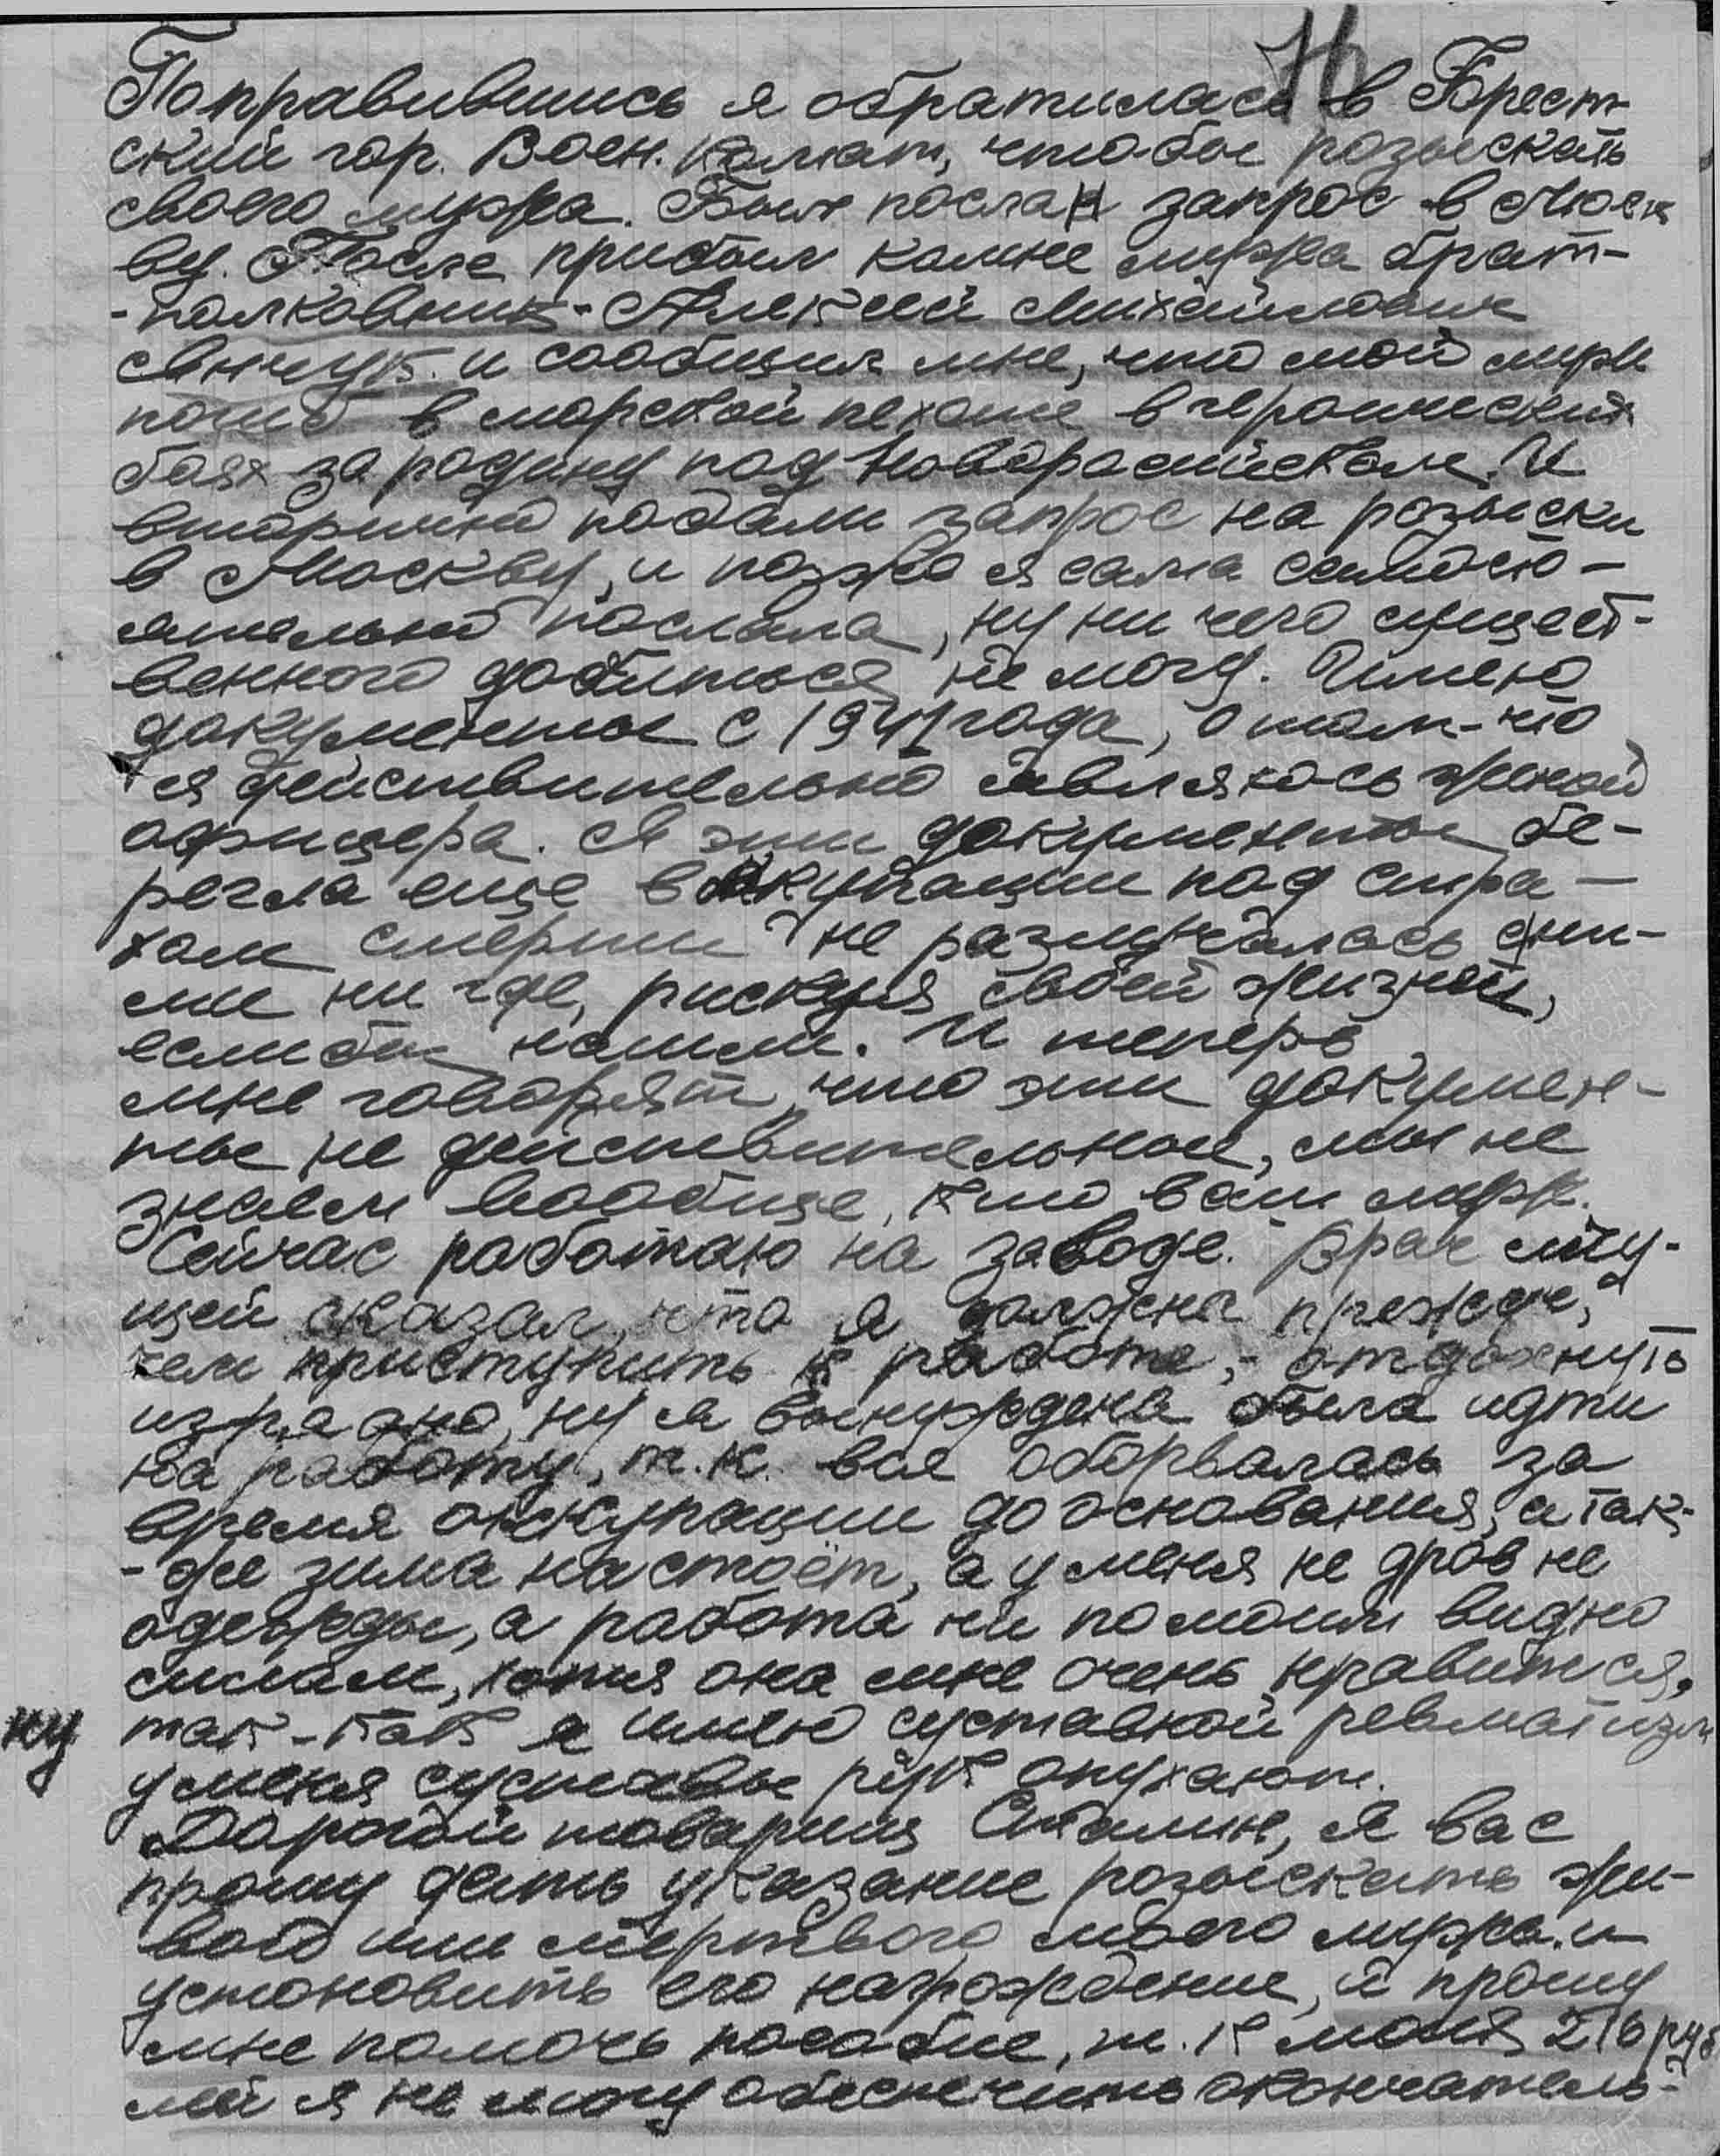 76
Поправившись я обратилась в Брест-
ский гор. Воен. Комат, что-бы розыскать
своего мужа. Был послан запрос в Моск
ву. После прибыл комне мужа брат-
-полковник-Алексей Михайлович
Янчук и сообщил мне, что мой муж
погиб в морской пехоте в героических
боях за родину под Новорасийском. И
вторично подали запрос на розыски
в Москву, и позже я сама самосто-
ятельно послала, ну ни чего сущест-
венного добиться не могу. Имею
документы с 1941 года, о том-что
я действительно являюсь женой
офицера. Я эти документы бе-
регла еще в оккупации под стра-
хом смерти не разлучалась с ни-
ми ни где, рискуя своей жизней,
если бы нашли. И теперь
мне говорят, что эти докумен-
ты не действительные, мы не
знаем вообще, кто ваш муж.
Сейчас работаю на заводе. Врач
щей сказал, что я должна прежде,
чем приступить к работе,- отдохнуть
изрядно, ну я вынуждена была идти
на работу, т.к. вся оборвалась за
время оккупации до основания, а так-
-же зима настоёт, а у меня не дров не
одежды, а работа ни по моим видно
силам, хотя она мне очень нравится,
ну так-как я имею суставной ревматизм
у меня суставы рук опухают.
Дорогой товарищ Сталин, я вас
прошу дать указание розыскать жи-
вого или мертвого моего мужа. и
установить его награждение, и прошу
мне помочь пособие, т.к моих 216 руб
лей я не могу обеспечить окончатель-